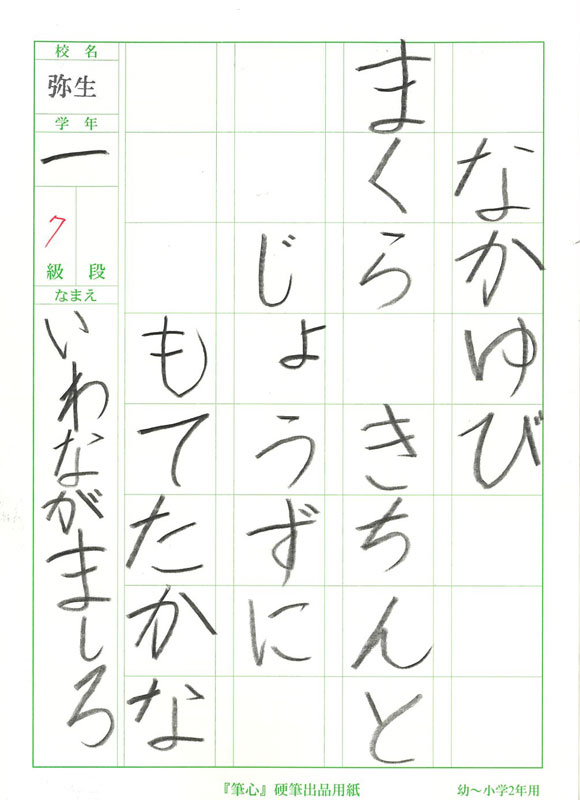 なかゆび
まくら　きちんと
じょうずに
もてたかな
校名
弥生
学年
一
段
級
7
なまえ
いわながましろ
『筆心』硬筆出品用紙
幼～小学2年用